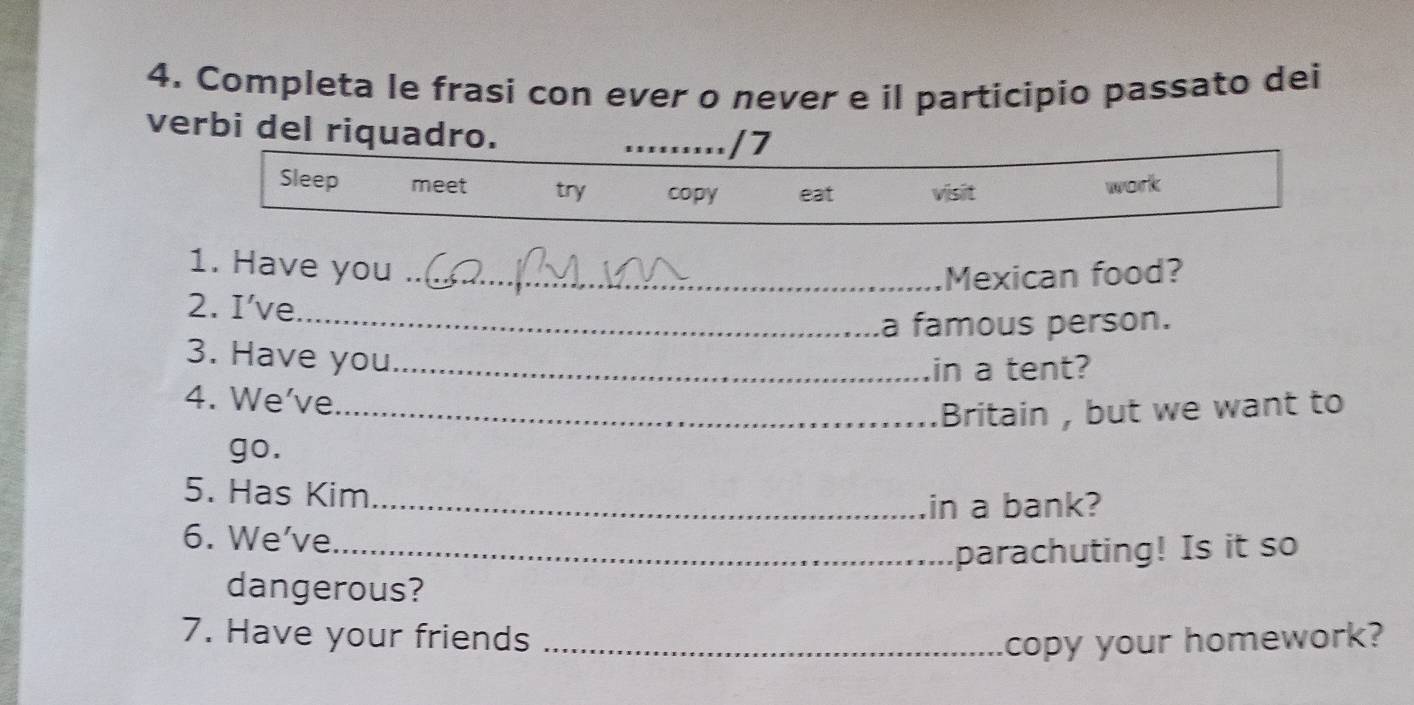 4. Completa le frasi con ever o never e il participio passato dei
verbi del riquadro. ........./7
Sleep meet try copy eat visit work
1. Have you .................................Mexican food?
2. I've.................................a famous person.
3. Have you.................................in a tent?
4. We've.................................Britain , but we want to
go.
5. Has Kim.................................in a bank?
6. We've.................................parachuting! Is it so
dangerous?
7. Have your friends .................................copy your homework?